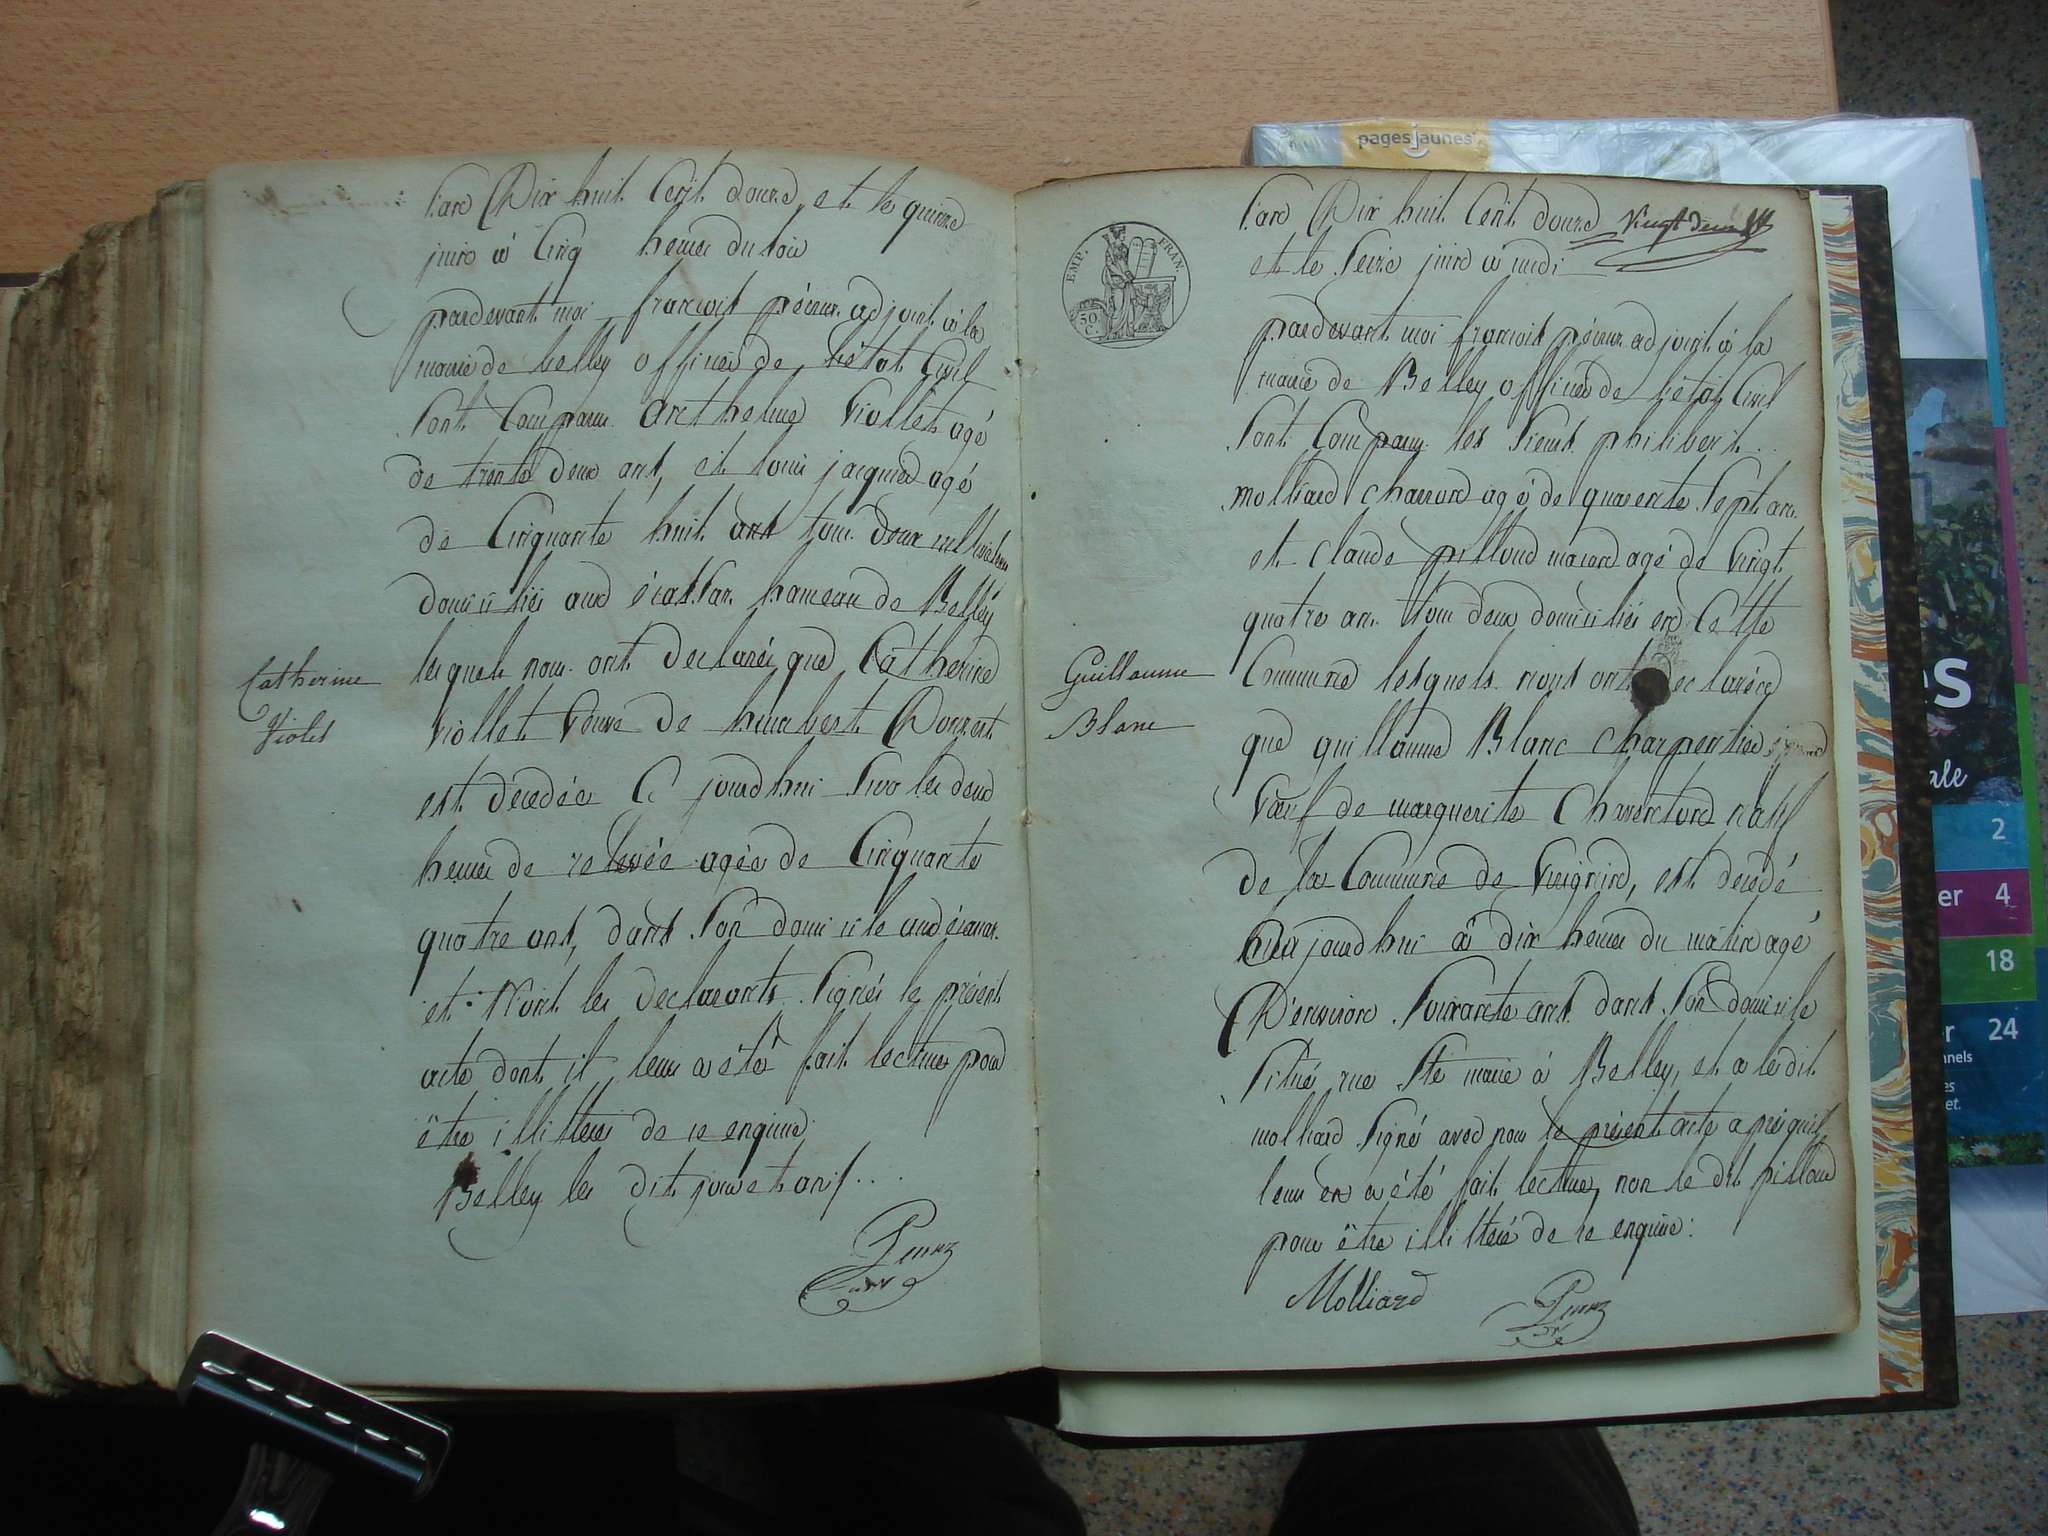 L'an Dix huit Cent douze et le quinze
juin à Cinq heures du soir
pardevant moi françois adjoint à la
mairie de belley officier de l'état Civil
Sont Comparu anthelme Viollet agé
de trente deux ans, et louis jacquier agé
de Cinquante huit ans tous deux cultivateurs
domiciliés aux écassas hameau de Belley
lesquels nous ont declarés que Catherine
Catherine
Violet
Viollet veuve de humbert
est décédée Ce jourd'hui Sur les deux
heures de relevée agée de Cinquante
quatre ans, dans Son domicile aux
et N'ont les declarants Signés le présent
acte dont il leur a été fait lecture pour
être illitterés de ce enquis
Belley les dit jour et an
L'an Dix huit Cent douze
Vingt deux
et le Seize juin à midi
EMP. FRAN.
50 C.
pardevant moi françois adjoint à la
mairie de Belley officier de l'état Civil
Sont Comparu les Sieurs philibert
molliard charron agé de quarente Sept ans
et claude pilloud maçon agé de Vingt
quatre ans tous deux domiciliés en Cette
Commune lesquels nous ont declarés
Guillaume
Blanc
que guillaume Blanc charpentier
Vœuf de marguerite natif
de la Commune de est décédé
aujourd'hui à dix heures du matin agé
D'environ Soixante ans dans Son domicile
Situé rue Ste marie à Belley, et a le dit
molliard Signé avec nous le présent acte après qu'il
leur en a été fait lecture, non le dit pilloud
pour être illitteré de ce enquis
Molliard
pagesjaunes
es
ale
2
er 4
18
er 24
nnels
es
et.